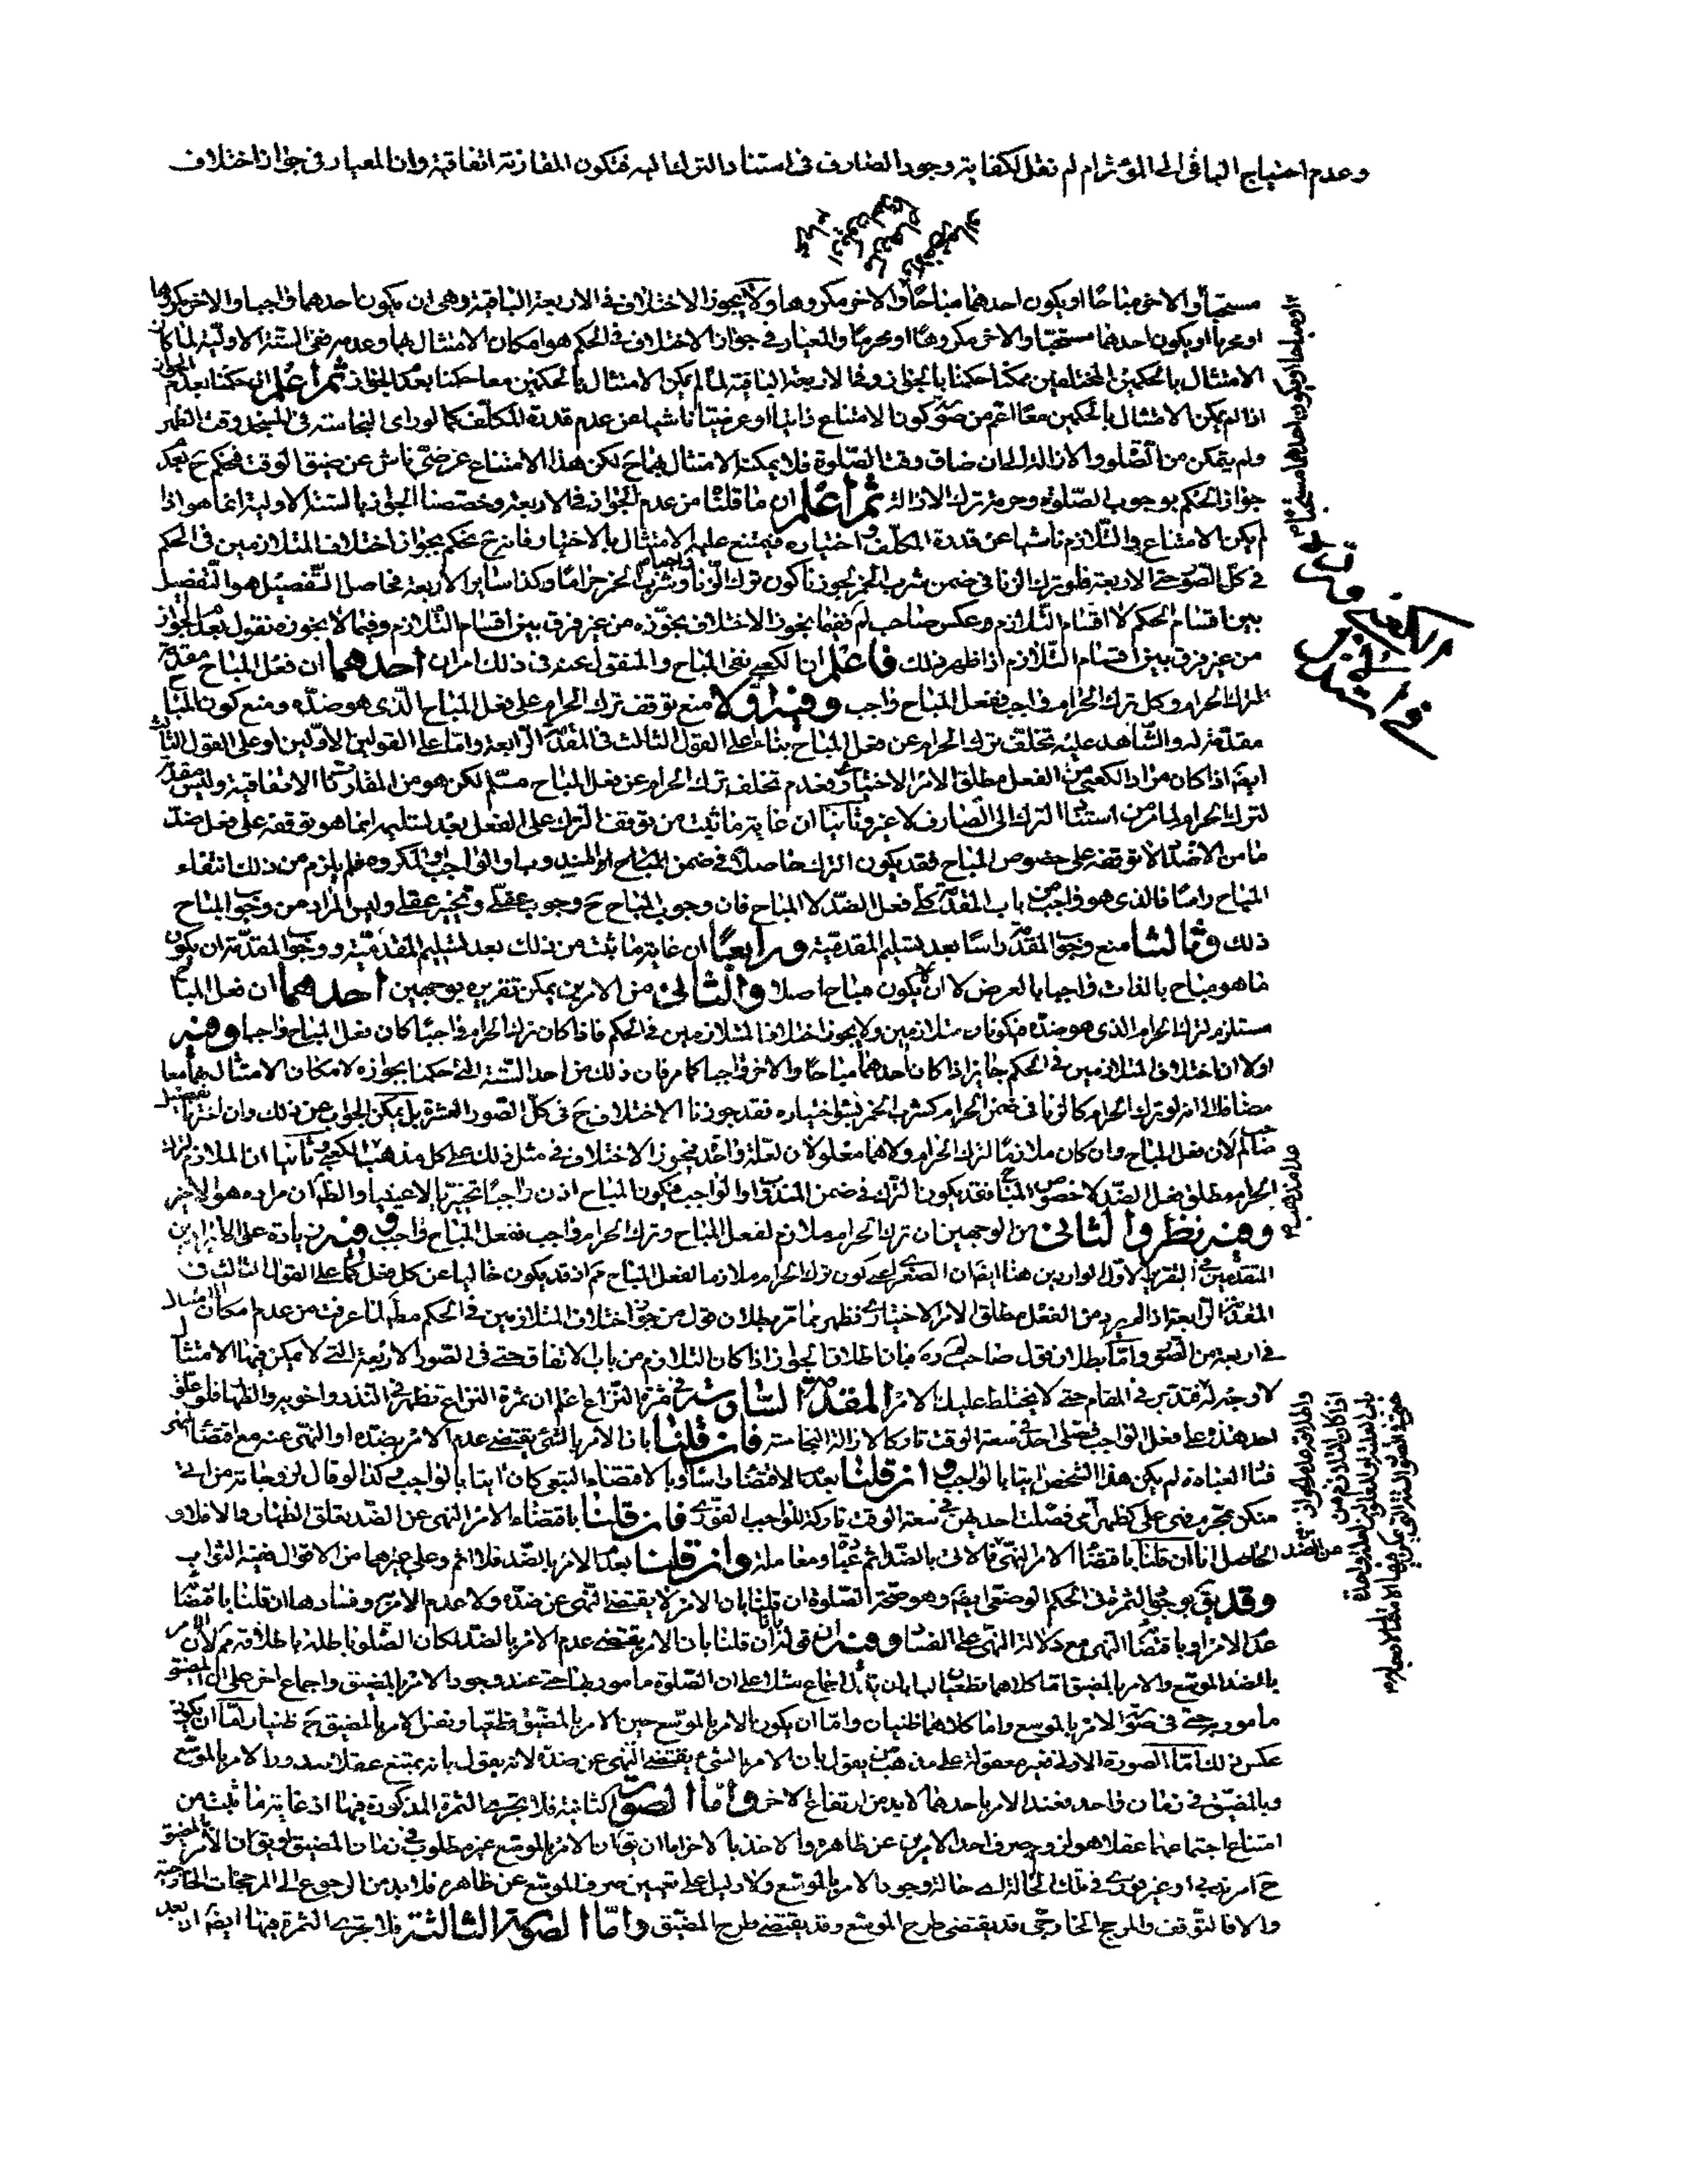 وعدم احتياج الباقى الى المؤثر ام لم نقل لكفاية وجود الصارف فى استناد الترك اليه فتكون المقارنة اتفاقية وان المعيار فى جواز اختلاف
مستحبا والاخر مباحًا او يكون احدهما مباحًا والاخر مكروها ولا يجوز الاختلاف فى الاربعة الباقية وهى ان يكون احدهما واجبا والاخر مكروها
او محرما او يكون احدهما مستحبّا والاخر مكروهًا او محرمًا والمعيار فى جواز الاختلاف فى الحكم هو امكان الامتثال بهما وعدمه ففى الستة الاولية لما كان
الامتثال بالحكمين المختلفين ممكنا حكمنا بالجواز وفى الاربعة الباقية لما لم يمكن الامتثال بالحكمين معا حكمنا بعدم الجواز ثم اعلم ان حكمنا بعدم الجواز
اذا لم يمكن الامتثال بالحكمين معًا اعم من صورة كون الامتناع ذاتيا او عرضيّا ناشيا عن عدم قدرة المكلّف كما لو راى النجاسة فى المسجد وقت الظهر
ولم يتمكن من الصّلوة والازالة الى ان ضاق وقت الصّلوة فلا يمكنه الامتثال بهما ح لكن هذا الامتناع عرضىّ ناش عن ضيق الوقت فنحكم ح بعدم
جواز الحكم بوجوب الصّلوة وحرمة ترك الازالة ثم اعلم ان ما قلنا من عدم الجواز فى الاربعة وخصصنا الجواز بالستة الاولية انما هو اذا
لم يكن الامتناع والتّلازم ناشيا عن قدرة المكلّف واختياره فيمتنع عليه الامتثال بالاختيار فانه ح نحكم بجواز اختلاف المتلازمين فى الحكم
فى كلّ الصّور حتى الاربعة فلو ترك الزنا فى ضمن شرب الخمر لجوزنا كون ترك الزّنا واجبا وشرب الخمر حرامًا وكذا ساير الاربعة فحاصل التّفصيل هو التّفصيل
بين اقسام الحكم لا اقسام التّلازم وعكس صاحب لم ففيما يجوز الاختلاف يجوّزه من غير فرق بين اقسام التّلازم وفيما لا يجوزه نقول بعدم الجواز
من غير فرق بين اقسام التّلازم اذا ظهر ذلك فاعلم ان الكعبى نفى المباح والمنقول عنه فى ذلك امران احدهما ان فعل المباح مقدمة
لترك الحرام وكل ترك الحرام واجب ففعل المباح واجب وفيه اوّلا منع توقف ترك الحرام على فعل المباح الّذى هو ضدّه ومنع كون المباح
مقدّمة له والشّاهد عليه تخلّف ترك الحرام عن فعل المباح بناء على القول الثالث فى المقدّمة الرّابعة وامّا على القولين الاوّلين او على القول الثالث
ايضا اذا كان مراد الكعبى من الفعل مطلق الامر الاختيارى فعدم تخلف ترك الحرام عن فعل المباح مسلّم لكن هو من المقارنات الاتفاقية وليس مقدمة
لترك الحرام لما مر من استناد الترك الى الصّارف لا غير وثانيا ان غاية ما ثبت من توقف الترك على الفعل بعد تسليمه انما هو توقفه على فعل ضدّ
ما من الاضداد لا توقفه على خصوص المباح فقد يكون الترك حاصلا فى ضمن المباح او المندوب او الواجب او المكروه فلم يلزم من ذلك انتفاء
المباح راسًا فالذى هو واجب من باب المقدّمة كلّى فعل الضدّ لا المباح فان وجوب المباح ح وجوب عقلى وتخيير عقلى وليس المراد من وجوب المباح
ذلك وثالثا منع وجوب المقدّمة راسًا بعد تسليم المقدمية ورابعًا ان غاية ما ثبت من ذلك بعد تسليم المقدميّة ووجوب المقدّمة ان يكون
ما هو مباح بالذات واجبا بالعرض لا ان لا يكون مباح اصلا والثانى من الامرين يمكن تقريره بوجهين احدهما ان فعل المباح
مستلزم لترك الحرام الذى هو ضدّه فيكونان متلازمين ولا يجوز اختلاف المتلازمين فى الحكم فاذا كان ترك الحرام واجبًا كان فعل المباح واجبا وفيه
اولا ان اختلاف المتلازمين فى الحكم جايز اذا كان احدهما مباحًا والاخر واجبا كما مر فان ذلك من احد الستّة التى حكمنا بجوازه لامكان الامتثال بهما معا
مضافا الى انه لو ترك الحرام كالزنا فى ضمن الحرام كشرب الخمر بسوء اختياره فقد جوزنا الاختلاف ح فى كلّ الصّور العشرة بل يمكن الجواب عن ذلك وان اخترنا تفصيل
صاحب لم لان فعل المباح وان كان ملازمًا لترك الحرام ولا هما معلولان لعلّة واحدة فيجوز الاختلاف فى مثل ذلك على كل مذهب الكعبى وثانيا ان الملازم لترك
الحرام مطلق فعل الضدّ لا خصوص المباح فقد يكون الترك فى ضمن المندوب او الواجب فيكون المباح اذن واجبًا تخييريا لا عينيا والظ ان مراده هو الاخير
وفيه نظر والثانى من الوجهين ان ترك الحرام ملازم لفعل المباح وترك الحرام واجب ففعل المباح واجب وفيه زيادة على الايرادين
المتقدّمين فى التقرير الاوّل الواردين هنا ايضا ان الصّغرى اعنى كون ترك الحرام ملازما لفعل المباح مم اذ قد يكون خاليا عن كل فعل كما على القول الثالث فى
المقدّمة الرّابعة اذا لم يرد من الفعل مطلق الامر الاختيارى فظهر بما مر بطلان قول من جوز اختلاف المتلازمين فى الحكم مط لما عرفت من عدم امكان الامتثال
فى اربعة من الصّور وامّا بطلان قول صاحب لم ره فبان اطلاق الجواز اذا كان التلازم من باب الاتفاق حتى فى الصّور الاربعة التى لا يمكن فيها الامتثال
لا وجه له فتدبّر فى المقام حتى لا يختلط عليك الامر المقدّمة السّادسة فى ثمرة النّزاع اعلم ان ثمرة النزاع تظهر فى النذر واخويه والظهار فلو علّق
احد هذه على فعل الواجب فصلى احد فى سعة الوقت تاركا لازالة النجاسة فان قلنا بان الامر بالشئ يقتضى عدم الامر بضدّه او النهى عنه مع اقتضاء النهى
فساد العبادة لم يكن هذا الشخص اتيا بالواجب وان قلنا بعدم الاقتضاء راسًا او بالاقتضاء التبعى كان اتيا بالواجب وكذا لو قال لزوجاته من اتى
منكن بمحرم فهى علىّ كظهر امّى فصلت احديهن فى سعة الوقت تاركة للواجب الفورى فان قلنا باقتضاء الامر النهى عن الضّد يقع الظهار والا فلا و
الحاصل انا ان قلنا باقتضاء الامر النهى فالاتى بالضّد اثم وان قلنا بعدم الامر بالضّد فلا اثم وعلى غيرهما من الاقوال ففيه الثواب
وقد يق بوجود الثمرة فى الحكم الوضعى ايضا وهو صحّة الصّلوة ان قلنا بان الامر لا يقتضى النّهى عن ضدّه ولا عدم الامر به وفسادها ان قلنا باقتضاء
عدم الامر او باقتضاء النهى مع دلالة النهى على الفساد وفيه ان قوله انا ان قلنا بان الامر يقتضى عدم الامر بالضّد لكان الصّلوة باطلة باطلاقه مم لان الامر
بالضد الموسّع والامر بالمضيق امّا كلاهما قطعيان بان قام اجماع مثلا على ان الصّلوة مامور بها حتى عند وجود الامر بالمضيق واجماع اخر على ان المضيق
مامور به حتى فى صورة الامر بالموسع وامّا كلاهما ظنيان وامّا ان يكون الامر بالموسّع حين الامر بالمضيّق قطعيا ونفس الامر بالمضيق ح ظنيا وامّا ان يكون
عكس ذلك امّا الصورة الاولى فغير معقولة على مذهب من يقول بان الامر بالشئ يقتضى النّهى عن ضدّه لانه يقول بانه يمتنع عقلا صدور الامر بالموسّع
وبالمضيّق فى زمان واحد فعند الامر باحدهما لابد من ارتفاع الاخر وامّا الصورة الثانية فلا تجرى الثمرة المذكورة فيها اذ غاية ما ثبت من
امتناع اجتماعهما عقلا هو لزوم صرف احد الامرين عن ظاهره والاخذ بالاخر اما ان يق ان الامر بالموسّع غير مطلوب فى زمان المضيق او يق ان الامر بالمضيق
ح امر ندبى او غير فورى فى تلك الحالة اى حالة وجود الامر بالموسّع ولا دليل على تعيين صرف الموسّع عن ظاهره فلابد من الرجوع الى المرجحات الخارجية
والا فالتّوقف والمرجح الخارجى قد يقتضى طرح الموسّع وقد يقتضى طرح المضيّق وامّا الصورة الثالثة فلا تجرى الثمرة فيها ايضا اذ بعد